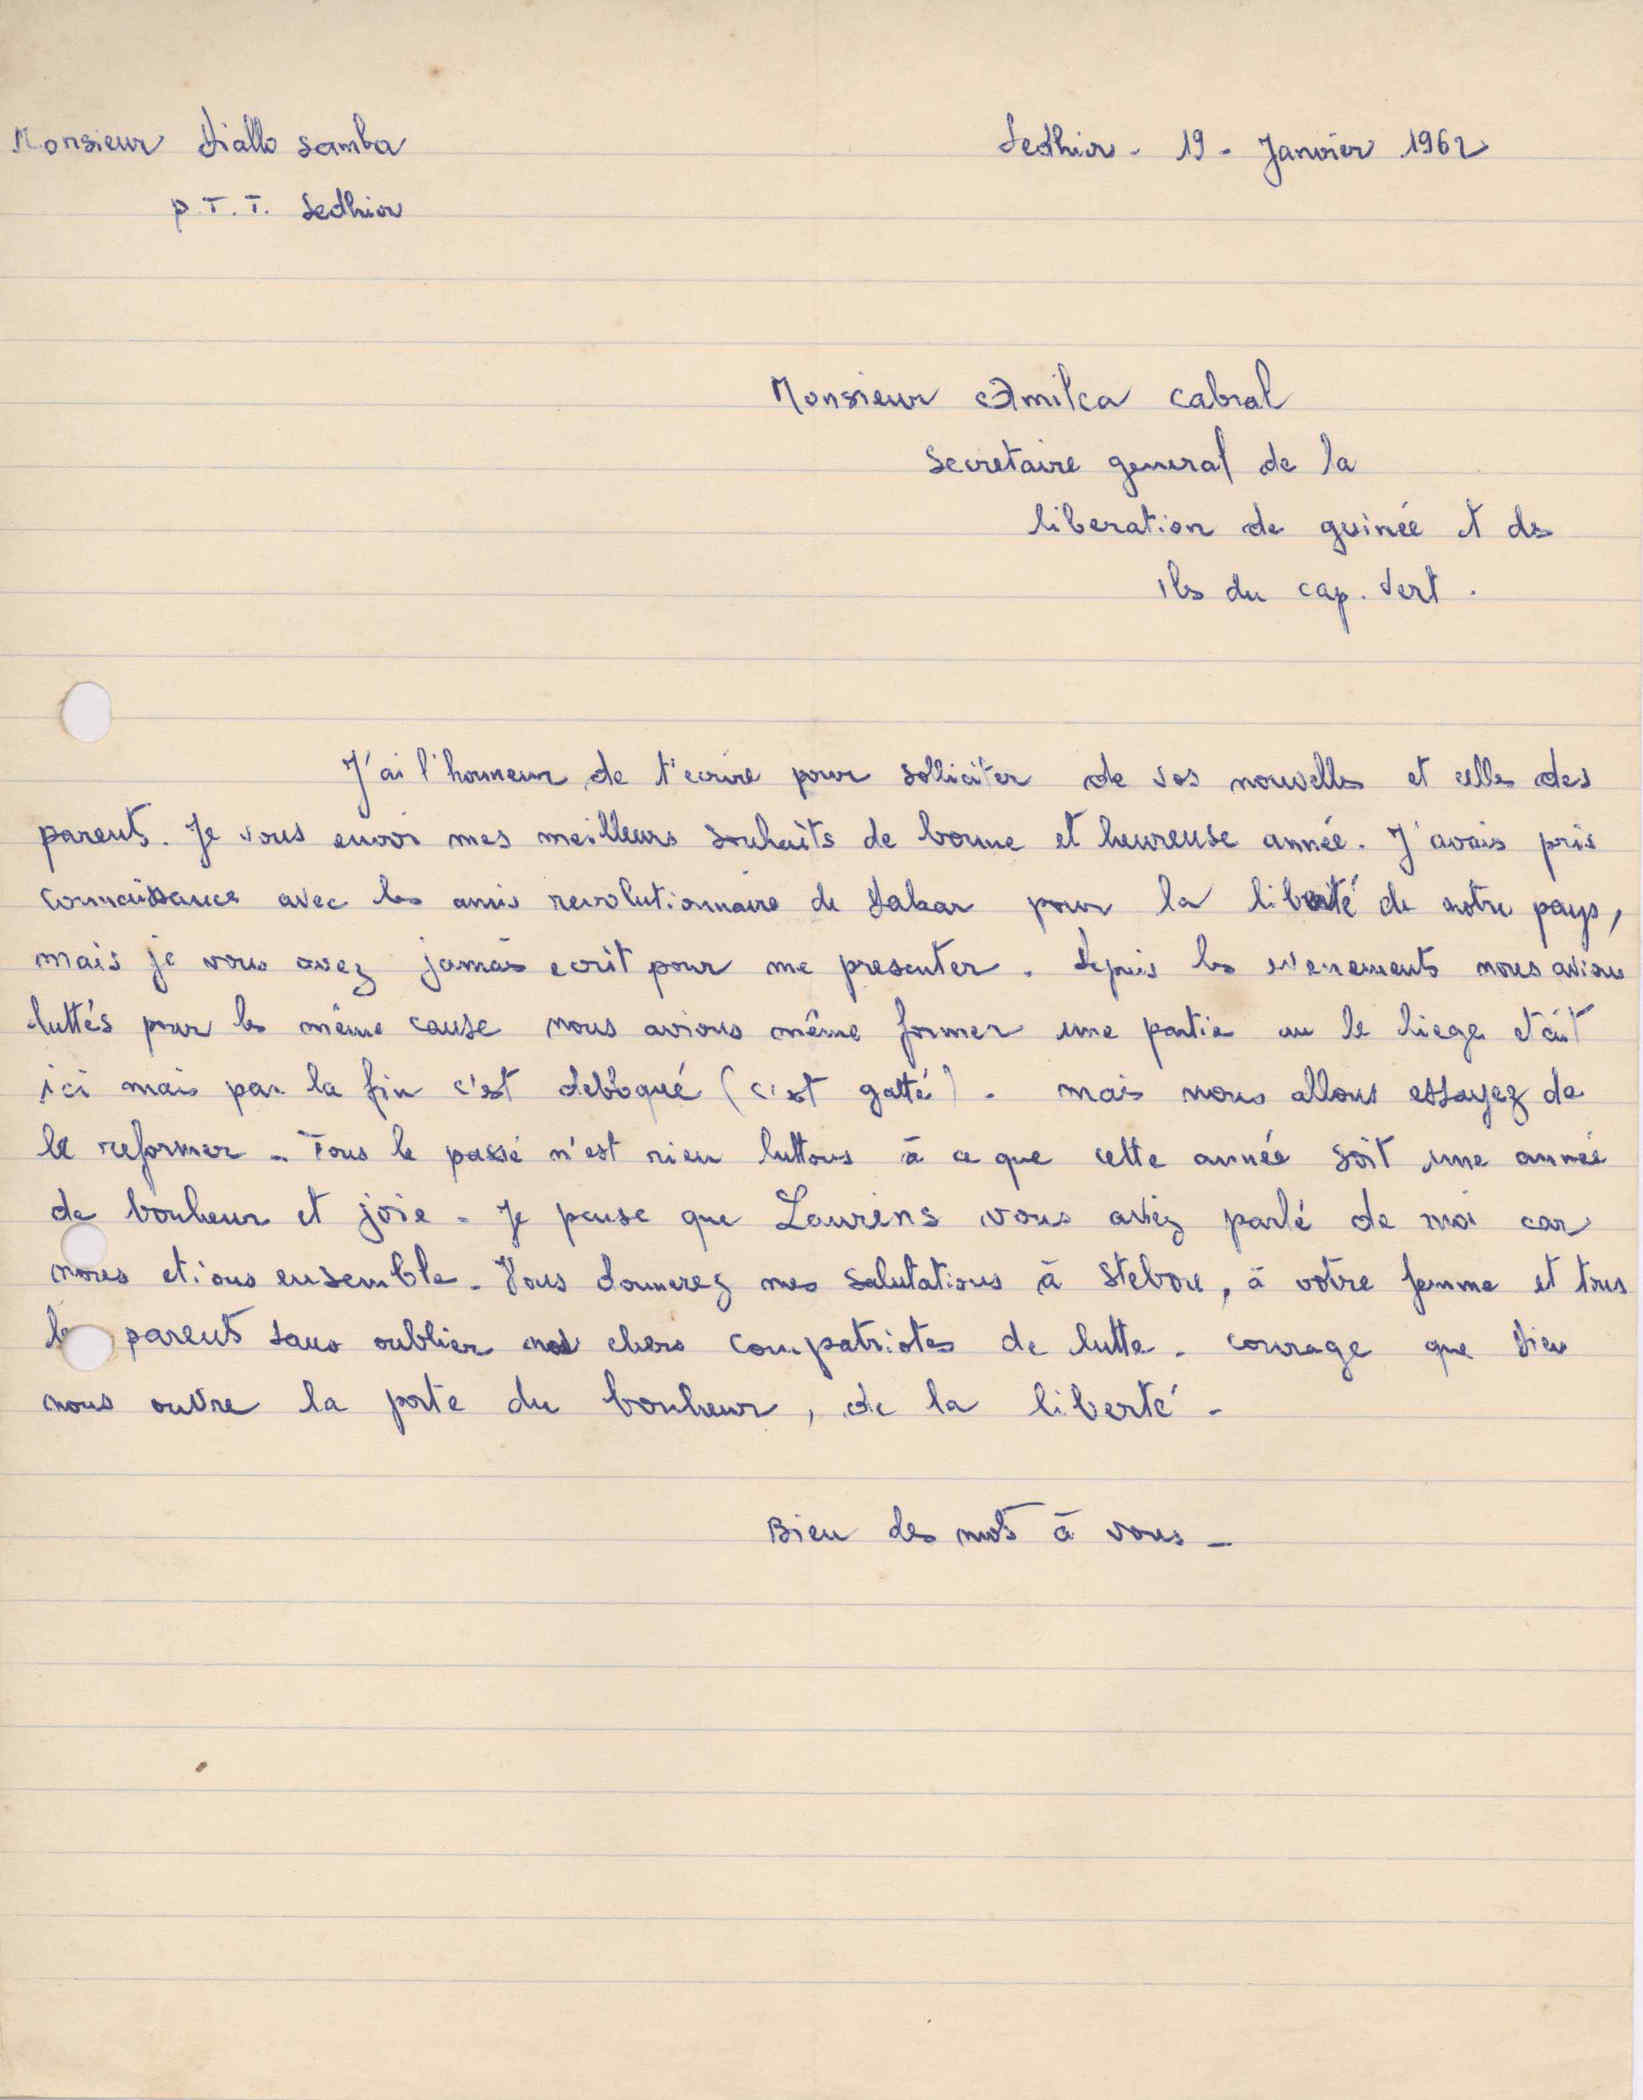 Monsieur Diallo Samba
Sedhiou - 19 - Janvier 1962
P.T.T. Sedhiou
Monsieur Amilca Cabral
Secretaire general de la
liberation de guinée et des
Iles du cap. Vert.
J'ai l'honneur de t'ecrire pour solliciter de vos nouvelles et celles des
parents. Je vous envoi mes meilleurs souhaits de bonne et heureuse année. J'avais pris
connaissance avec les amis revolutionnaire de Dakar pour la liberté de notre pays,
mais je vous avez jamais ecrit pour me presenter. Depuis les evenements nous avions
luttés pour les même cause nous avions même former une partie ou le siege etait
ici mais par la fin c'est debloqué (c'est gatté). mais nous allons essayez de
le reformer - Tous le passé n'est rien luttons à ce que cette année soit une année
de bonheur et joie - Je pense que Laurens vous aviez parlé de moi car
nous etions ensemble - Vous donnerez mes salutations à Stebou, à votre femme et tous
les parents sans oublier nos chers compatriotes de lutte - courage que Dieu
nous ouvre la porte du bonheur, de la liberté -
Bien des mots à vous -